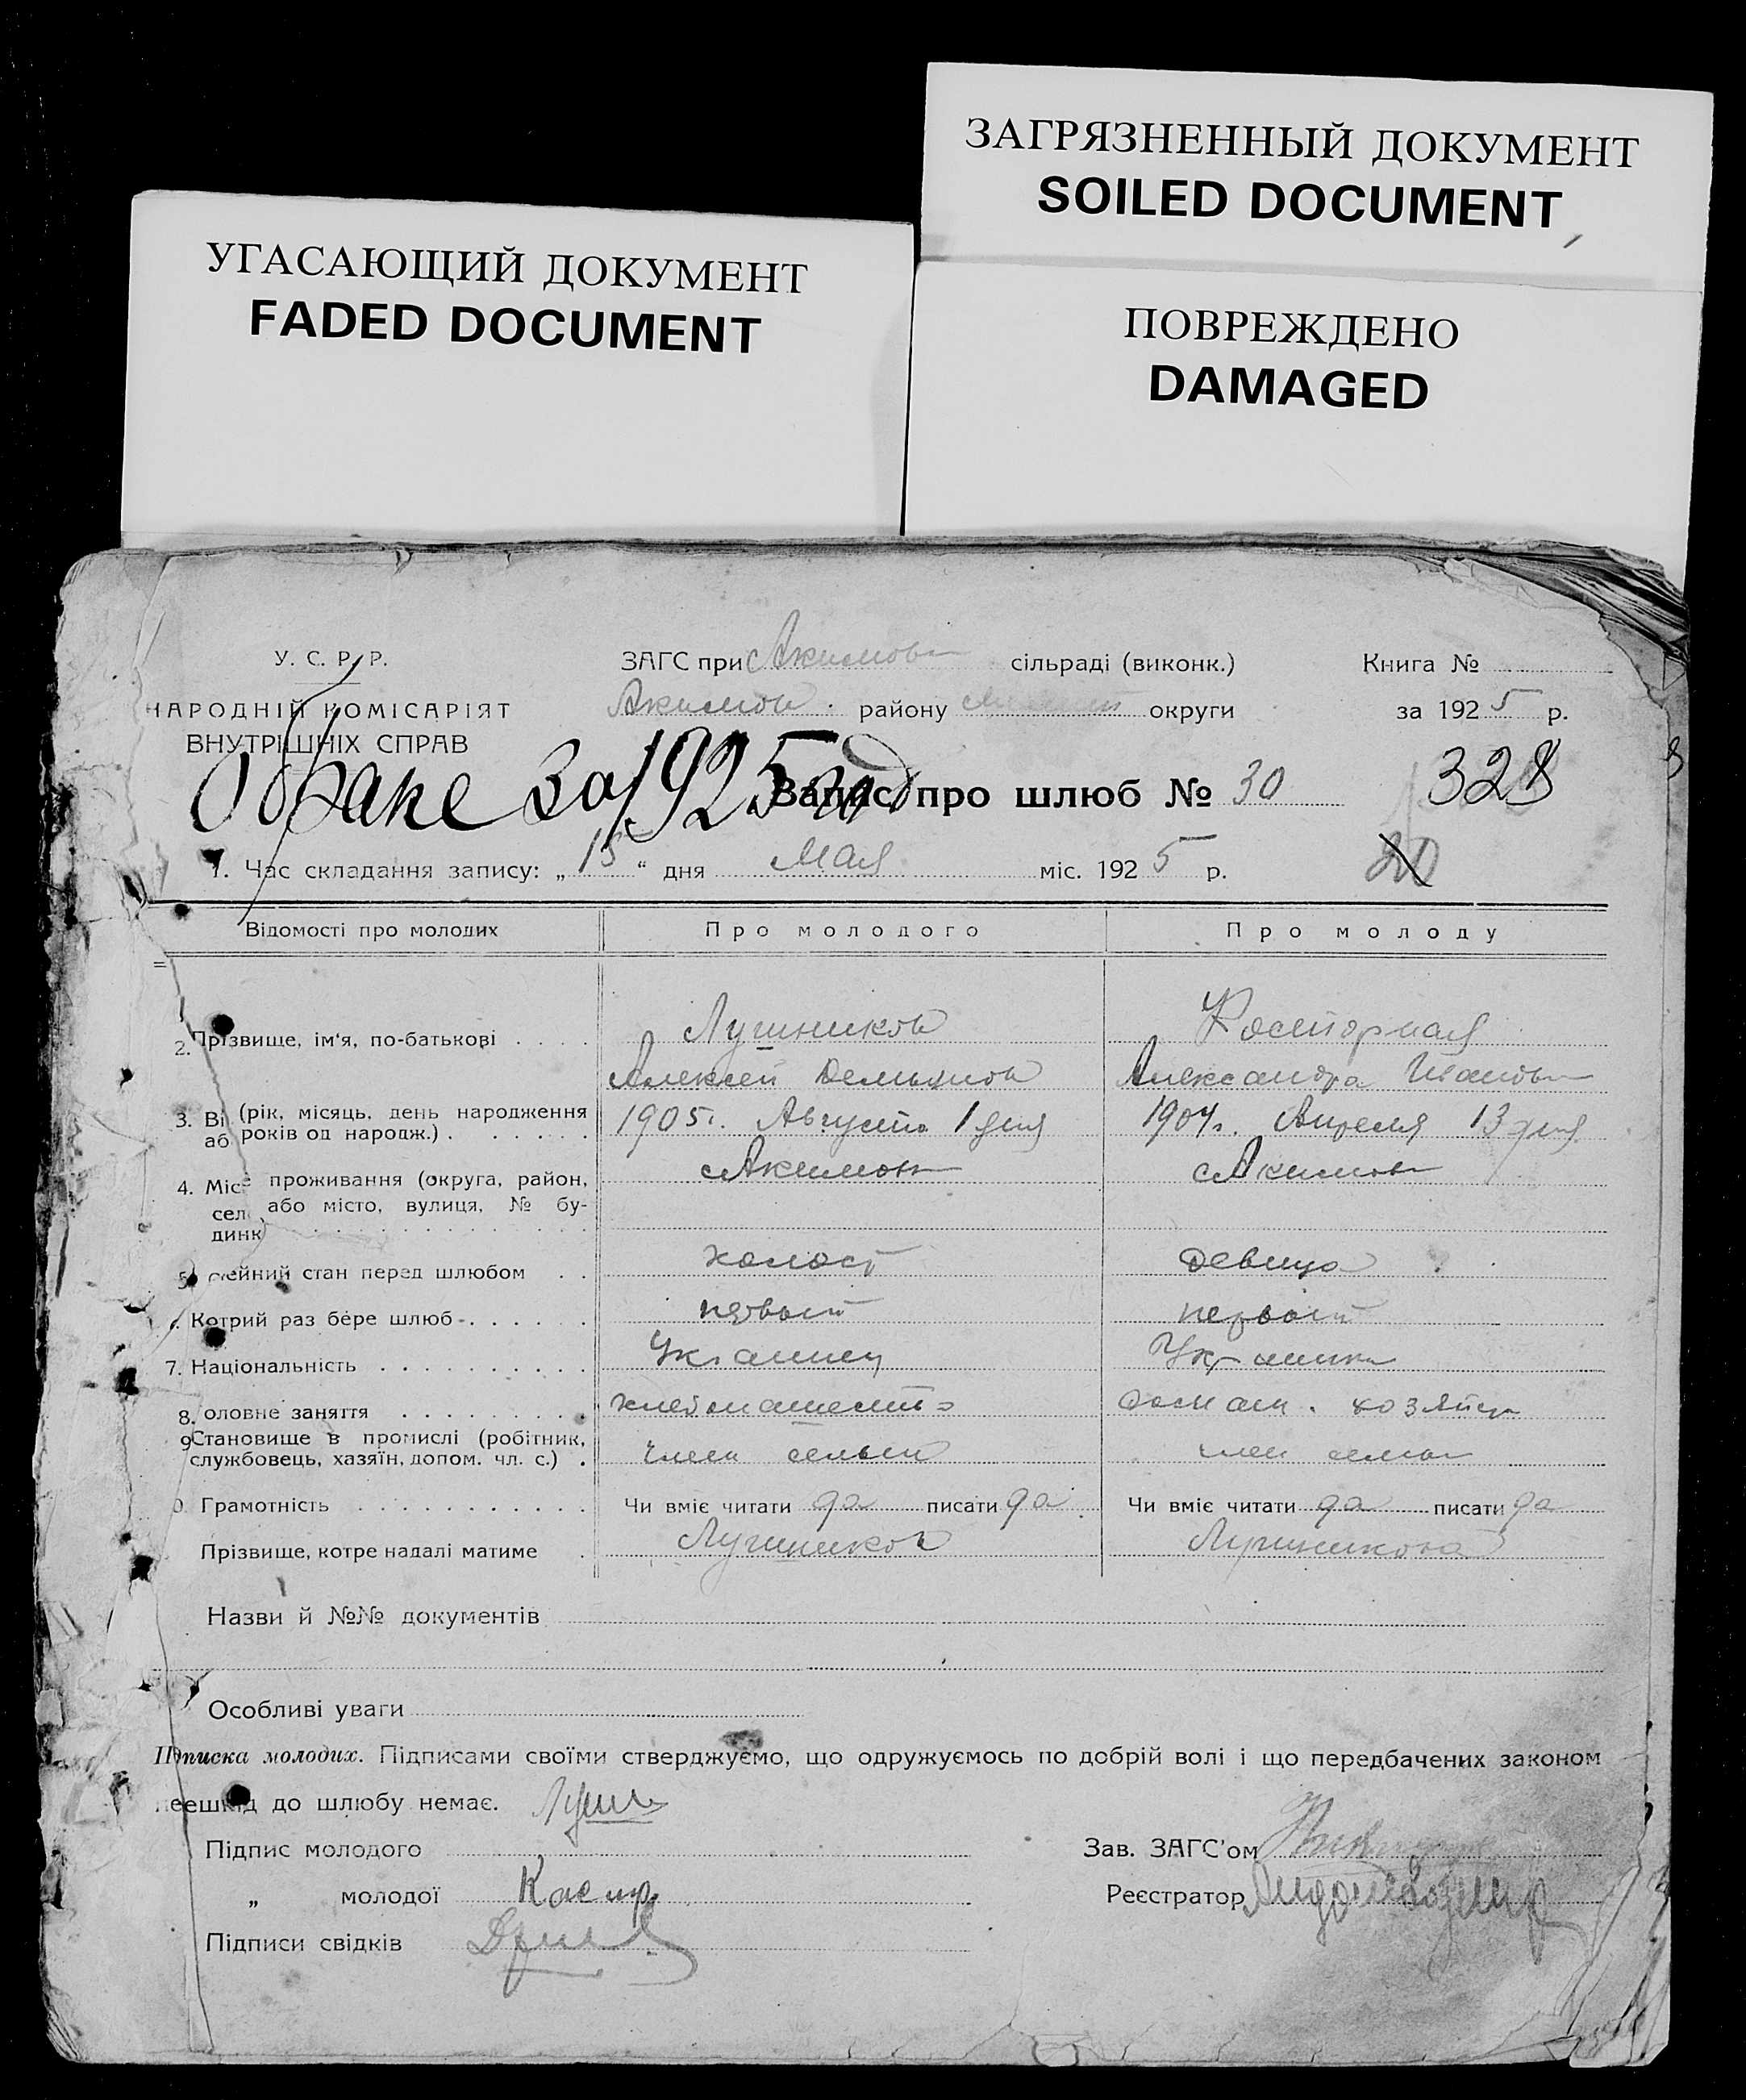 ЗАГРЯЗНЕННЫЙ ДОКУМЕНТ
SOILED DOCUMENT
УГАСАЮЩИЙ ДОКУМЕНТ
FADED DOCUMENT
ПОВРЕЖДЕНО
DAMAGED
У. С. Р. Р.
ЗАГС при Акимов сільраді (виконк.) Книга №
НАРОДНІЙ КОМІСАРІЯТ
Акимов. району округи за 1925 р.
ВНУТРІШНІХ СПРАВ
О браке за 1925 год
Запис про шлюб № 30 328
1. Час складання запису: „15“ дня Мая міс. 1925 р. 20
Відомості про молодих Про молодого Про молоду
2. Прізвище, ім'я, по-батькові Лушников
Алексей Александра Иванов
3. Ві (рік, місяць, день народження 1905г. Августа 1 дня 1904г. Апреля 13 дня
аб років од народж.)
4. Місе проживання (округа, район, Акимов Акимов
сел або місто, вулиця, № бу-
динк
5. мейний стан перед шлюбом холост девица
Котрий раз бере шлюб первый первый
7. Національність Украинец Украинка
8. оловне заняття хлебопашество домаш. хозяйка
9. Становище в промислі (робітник, член семьи член семьи
службовець, хазяїн, допом. чл. с.)
0. Грамотність Чи вміє читати да писати да Чи вміє читати да писати да
Прізвище, котре надалі матиме Лушников Лушникова
Назви й №№ документів
Особливі уваги
Підписка молодих. Підписами своїми стверджуємо, що одружуємось по добрій волі і що передбачених законом
пеешкід до шлюбу немає. Луш
Підпис молодого Зав. ЗАГС'ом
„ молодої Реєстратор
Підписи свідків